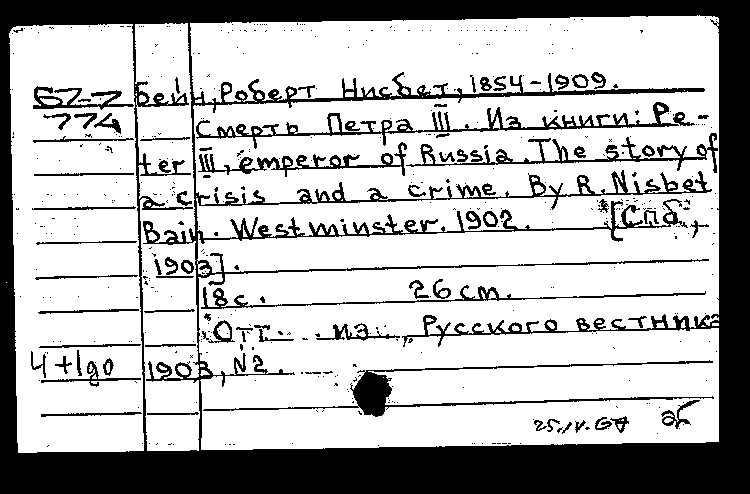 67-7 Бейн, Роберт Нисбет, 1854-1909.
774 Смерть Петра III. Из книги: Pe-
ter III, emperor of Russia. The story of
a crisis and a crime. By R. Nisbet
Bain. Westminster. 1902. [Спб,
1903].
18 с. 26 cm.
Отт. из „Русского вестника
4+1go 1903, N2.
25.IV.67